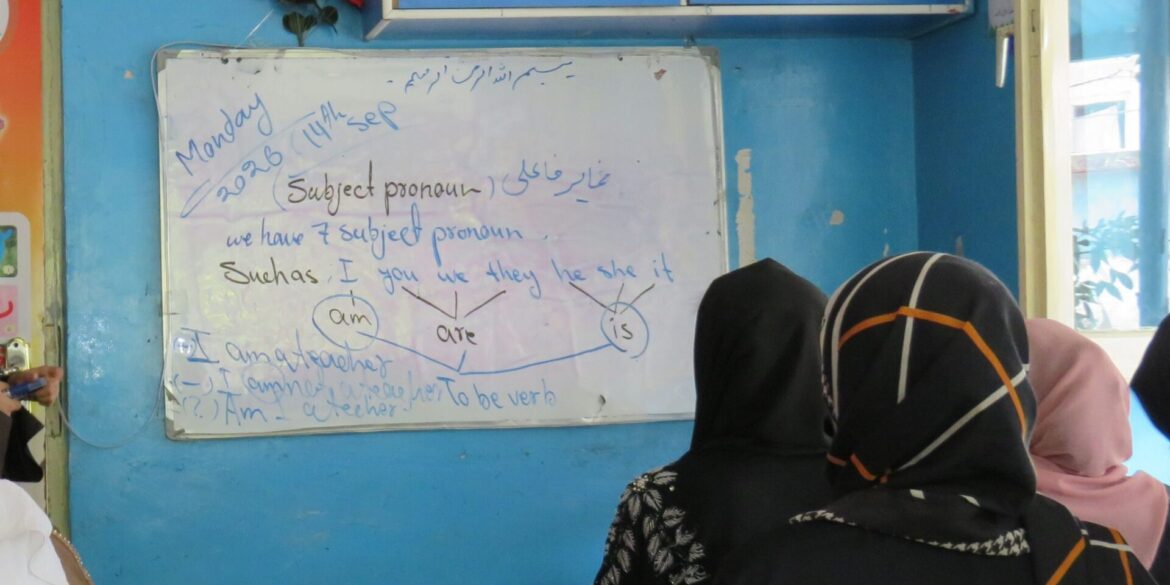 بسم الله الرحمن الرحیم
Monday 14th sep
2026
(Subject pronoun) ضمایر فاعلی
we have 7 subject pronoun.
Such as I you we they he she it
am are is
I am a teacher
(-) I am not a teacher To be verb
(?) Am I a techer